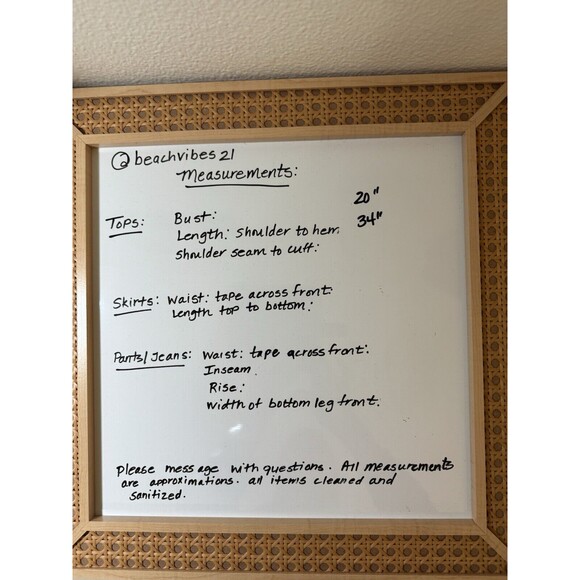 @beachvibes21
Measurements:
Tops: Bust: 20"
Length: shoulder to hem. 34"
shoulder seam to cuff:
Skirts: waist: tape across front:
Length top to bottom:
Pants/Jeans: waist: tape across front:
Inseam.
Rise:
width of bottom leg front.
Please message with questions. All measurements
are approximations. all items cleaned and
sanitized.